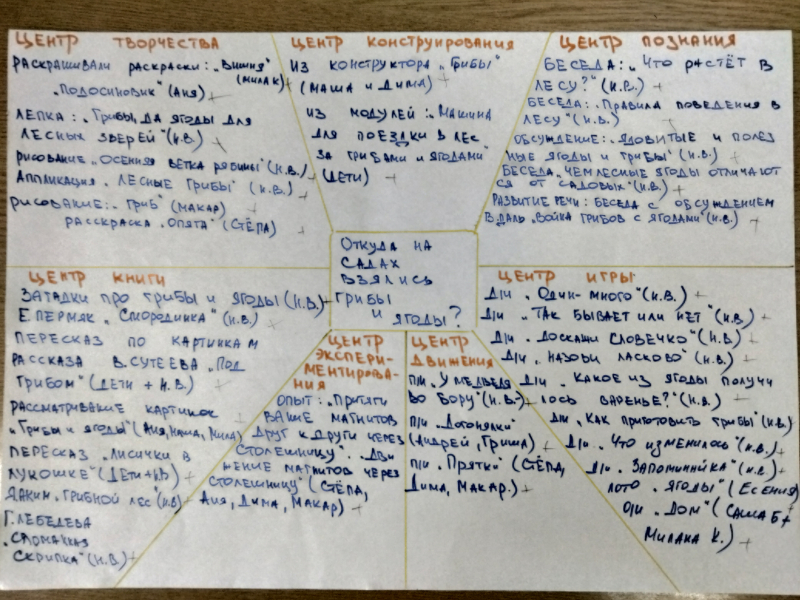 ЦЕНТР ТВОРЧЕСТВА
РАСКРАШИВАЛИ РАСКРАСКИ: „ВИШНЯ"
(МИЛА К)+
„ПОДОСИНОВИК" (АНЯ) +
ЛЕПКА: „ГРИБЫ, ДА ЯГОДЫ ДЛЯ
ЛЕСНЫХ ЗВЕРЕЙ" (И.В.) +
РИСОВАНИЕ „ОСЕННЯЯ ВЕТКА РЯБИНЫ" (И.В.) +
АППЛИКАЦИЯ „ЛЕСНЫЕ ГРИБЫ" (И.В.) +
РИСОВАНИЕ: „ГРИБ" (МАКАР) +
РАССКРАСКА „ОПЯТА" (СТЁПА) +
ЦЕНТР КОНСТРУИРОВАНИЯ
ИЗ КОНСТРУКТОРА „ГРИБЫ"
(МАША И ДИМА) +
ИЗ МОДУЛЕЙ: „МАШИНА
ДЛЯ ПОЕЗДКИ В ЛЕС
ЗА ГРИБАМИ И ЯГОДАМИ"
(ДЕТИ) +
ЦЕНТР ПОЗНАНИЯ
БЕСЕДА: „ЧТО РАСТЁТ В
ЛЕСУ?" (И.В.) +
БЕСЕДА: „ПРАВИЛА ПОВЕДЕНИЯ В
ЛЕСУ" (И.В.) +
ОБСУЖДЕНИЕ: „ЯДОВИТЫЕ И ПОЛЕЗ
НЫЕ ЯГОДЫ И ГРИБЫ" (И.В.) +
БЕСЕДА „ЧЕМ ЛЕСНЫЕ ЯГОДЫ ОТЛИЧАЮТ
СЯ ОТ САДОВЫХ" (И.В.) +
РАЗВИТИЕ РЕЧИ: БЕСЕДА С ОБСУЖДЕНИЕМ
В. ДАЛЬ „ВОЙНА ГРИБОВ С ЯГОДАМИ" (И.В.) +
ОТКУДА НА
САДАХ
ВЗЯЛИСЬ
ГРИБЫ
И ЯГОДЫ?
ЦЕНТР КНИГИ
ЗАГАДКИ ПРО ГРИБЫ И ЯГОДЫ (И.В.) +
Е ПЕРМЯК „СМОРОДИНКА" (И.В.) +
ПЕРЕСКАЗ ПО КАРТИНКАМ
РАССКАЗА В. СУТЕЕВА „ПОД
ГРИБОМ" (ДЕТИ + И.В.) +
РАССМАТРИВАНИЕ КАРТИНОК
„ГРИБЫ И ЯГОДЫ" (АНЯ, МАША, МИЛА) +
ПЕРЕСКАЗ „ЛИСИЧКИ В
ЛУКОШКЕ" (ДЕТИ + И.В) +
Я. АКИМ „ГРИБНОЙ ЛЕС" (И.В) +
Г. ЛЕБЕДЕВА
СКРИПКА" (И.В.) +
ЦЕНТР
ЭКСПЕРИ-
МЕНТИРОВА-
НИЯ
ОПЫТ: „ПРИТЯГИ
ВАНИЕ МАГНИТОВ
ДРУГ К ДРУГИ ЧЕРЕЗ
СТОЛЕШНИЦУ" „ДВИ
ЖЕНИЕ МАГНИТОВ ЧЕРЕЗ
СТОЛЕШНИЦУ" (СТЁПА,
АНЯ, ДИМА, МАКАР) +
ЦЕНТР
ДВИЖЕНИЯ
П/И „У МЕДВЕДЯ
ВО БОРУ" (И.В.) +
П/И „ДОГОНЯЛКИ"
(АНДРЕЙ, ГРИША) +
П/И „ПРЯТКИ" (СТЁПА,
ДИМА, МАКАР.) +
ЦЕНТР ИГРЫ
Д/И „ОДИН-МНОГО" (И.В.) +
Д/И „ТАК БЫВАЕТ ИЛИ НЕТ" (И.В.) +
Д/И „ДОСКАЖИ СЛОВЕЧКО" (И.В.) +
Д/И „НАЗОВИ ЛАСКОВО" (И.В.) +
Д/И „КАКОЕ ИЗ ЯГОДЫ ПОЛУЧИ
ЛОСЬ ВАРЕНЬЕ?" (И.В.) +
Д/И „КАК ПРИГОТОВИТЬ ГРИБЫ" (И.В.) +
Д/И „ЧТО ИЗМЕНИЛОСЬ" (И.В.) +
Д/И „ЗАПОМИНАЙКА" (И.В.) +
ЛОТО „ЯГОДЫ" (ЕСЕНИЯ)
„ДОМ" (САША Б +
МИЛАНА К.) +